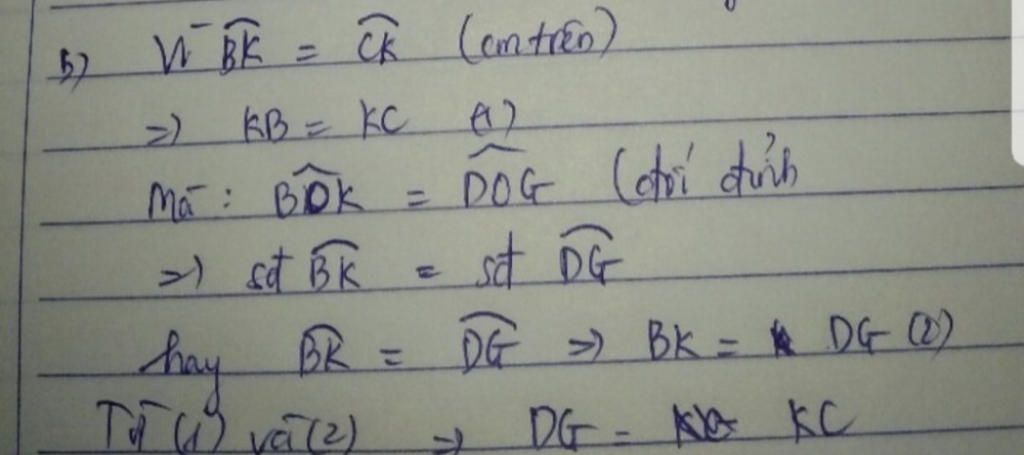 b) Vì \overparen{BK} = \overparen{CK} (cm trên)
=> KB = KC (1)
Mà: \widehat{BOK} = \widehat{DOG} (đối đỉnh
=> sđ \overparen{BK} = sđ \overparen{DG}
hay \overparen{BK} = \overparen{DG} => BK = DG (2)
Từ (1) và (2) => DG = KC